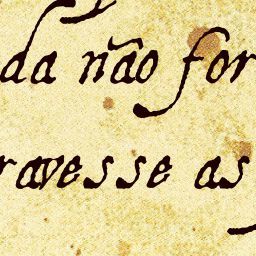 da não for
ravesse as